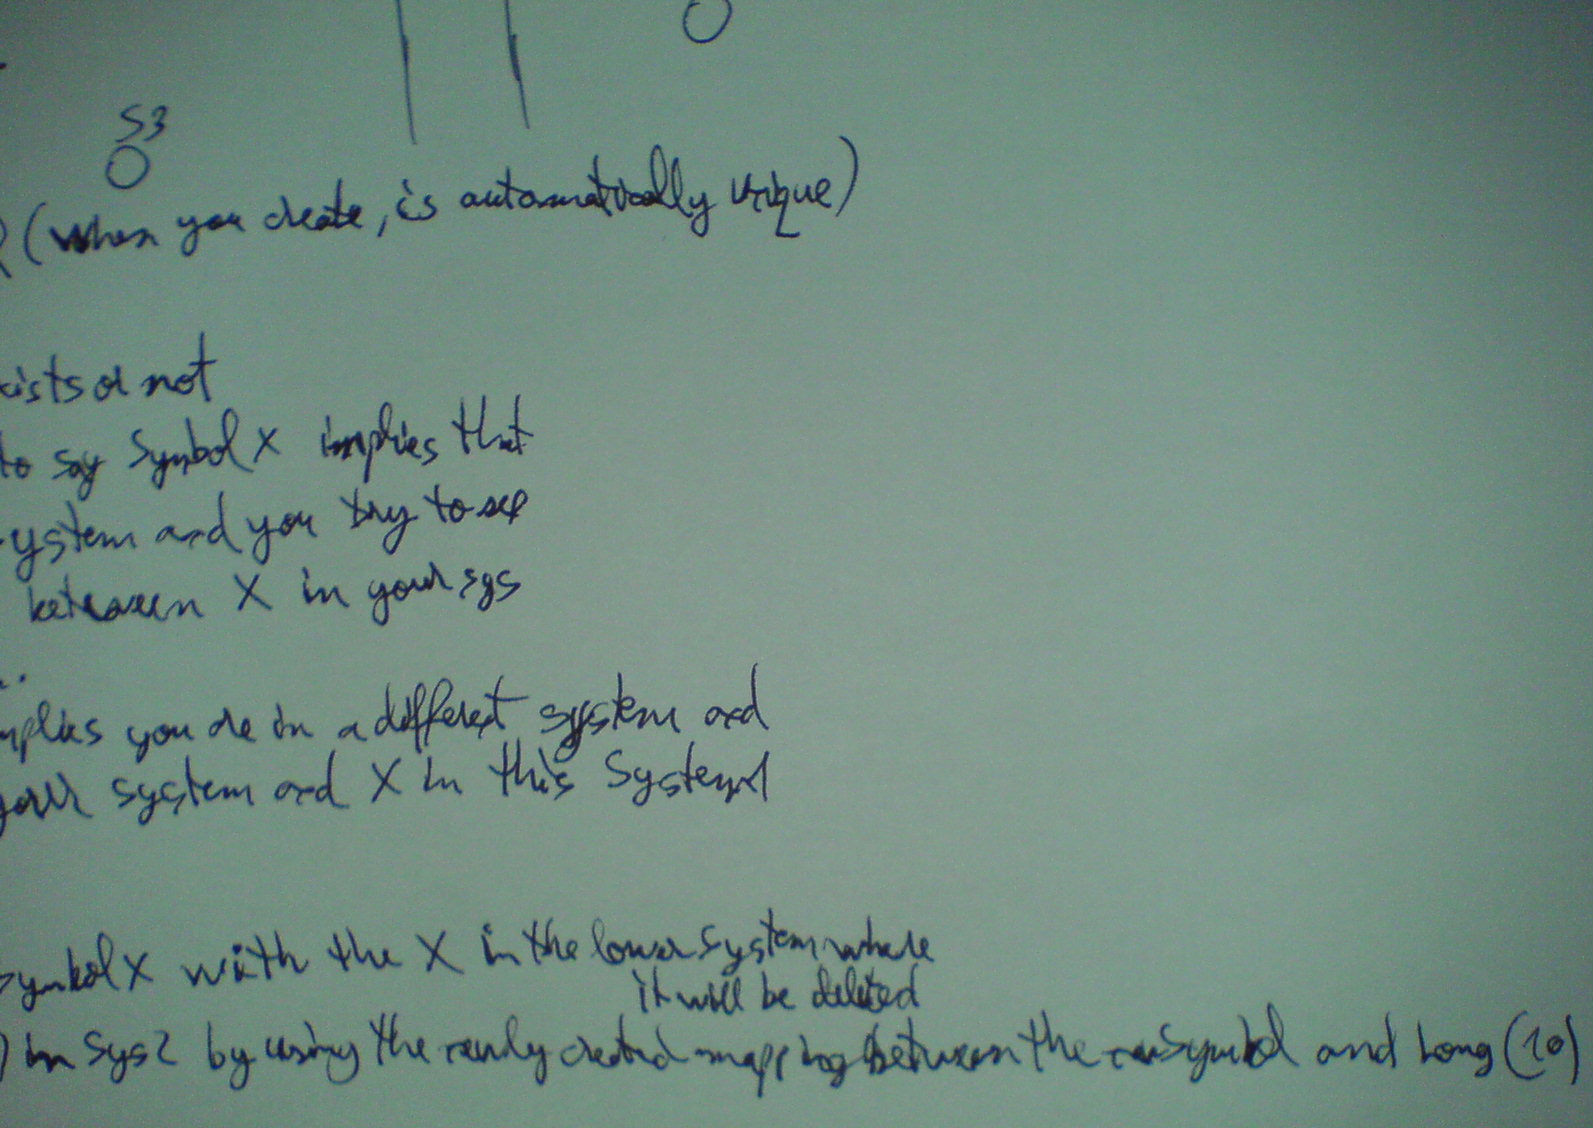 S3
(when you create, is automatically unique)
xists or not
to say Symbol X implies that
ystem and you try to see
between X in your sys
mplies you are in a different system and
your system and X in this System
symbol X with the X in the lower system where
it will be deleted
) in Sys2 by using the newly created mapping between the symbol and Long (10)